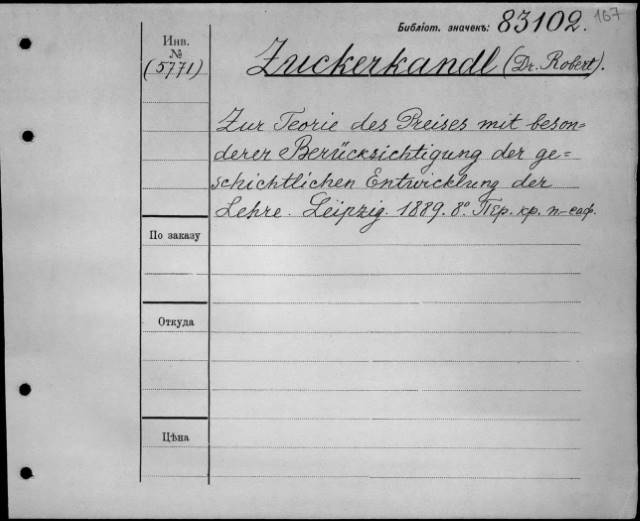 Библіот. значекъ: 83102. 167
Инв.
№
(5771)
Zuckerkandl (Dr. Robert).
Zur Teorie des Preises mit beson=
derer Berücksichtigung der ge=
schichtlichen Entwicklung der
Lehre. Leipzig. 1889. 8º. Пер. кр. п-саф.
По заказу
Откуда
Цѣна